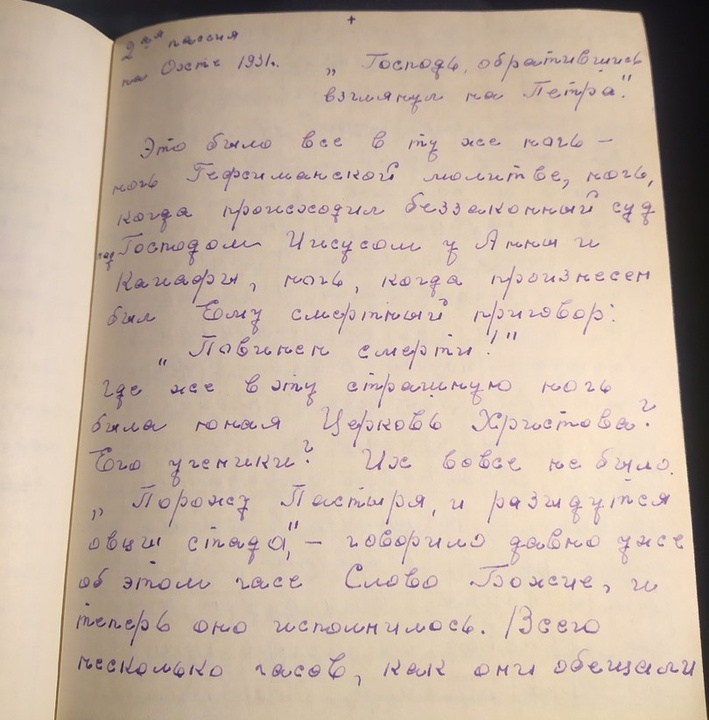 +
2ая пассия
на Охте 1931г.
„ Господь, обратившись
взглянул на Петра".
Это было все в ту же ночь –
ночь Гефсиманской молитве, ночь,
когда происходил беззаконный суд
над Господом Иисусом у Анны и
Каиафы, ночь, когда произнесен
был Ему смертный приговор:
„ Повинен смерти!"
Где же в эту страшную ночь
была юная Церковь Христова?
Его ученики? Их вовсе не было.
„ Поражу Пастыря, и разыдутся
овцы стада", – говорило давно уже
об этом часе Слово Божие, и
теперь оно исполнилось. /Всего
несколько часов, как они обещали